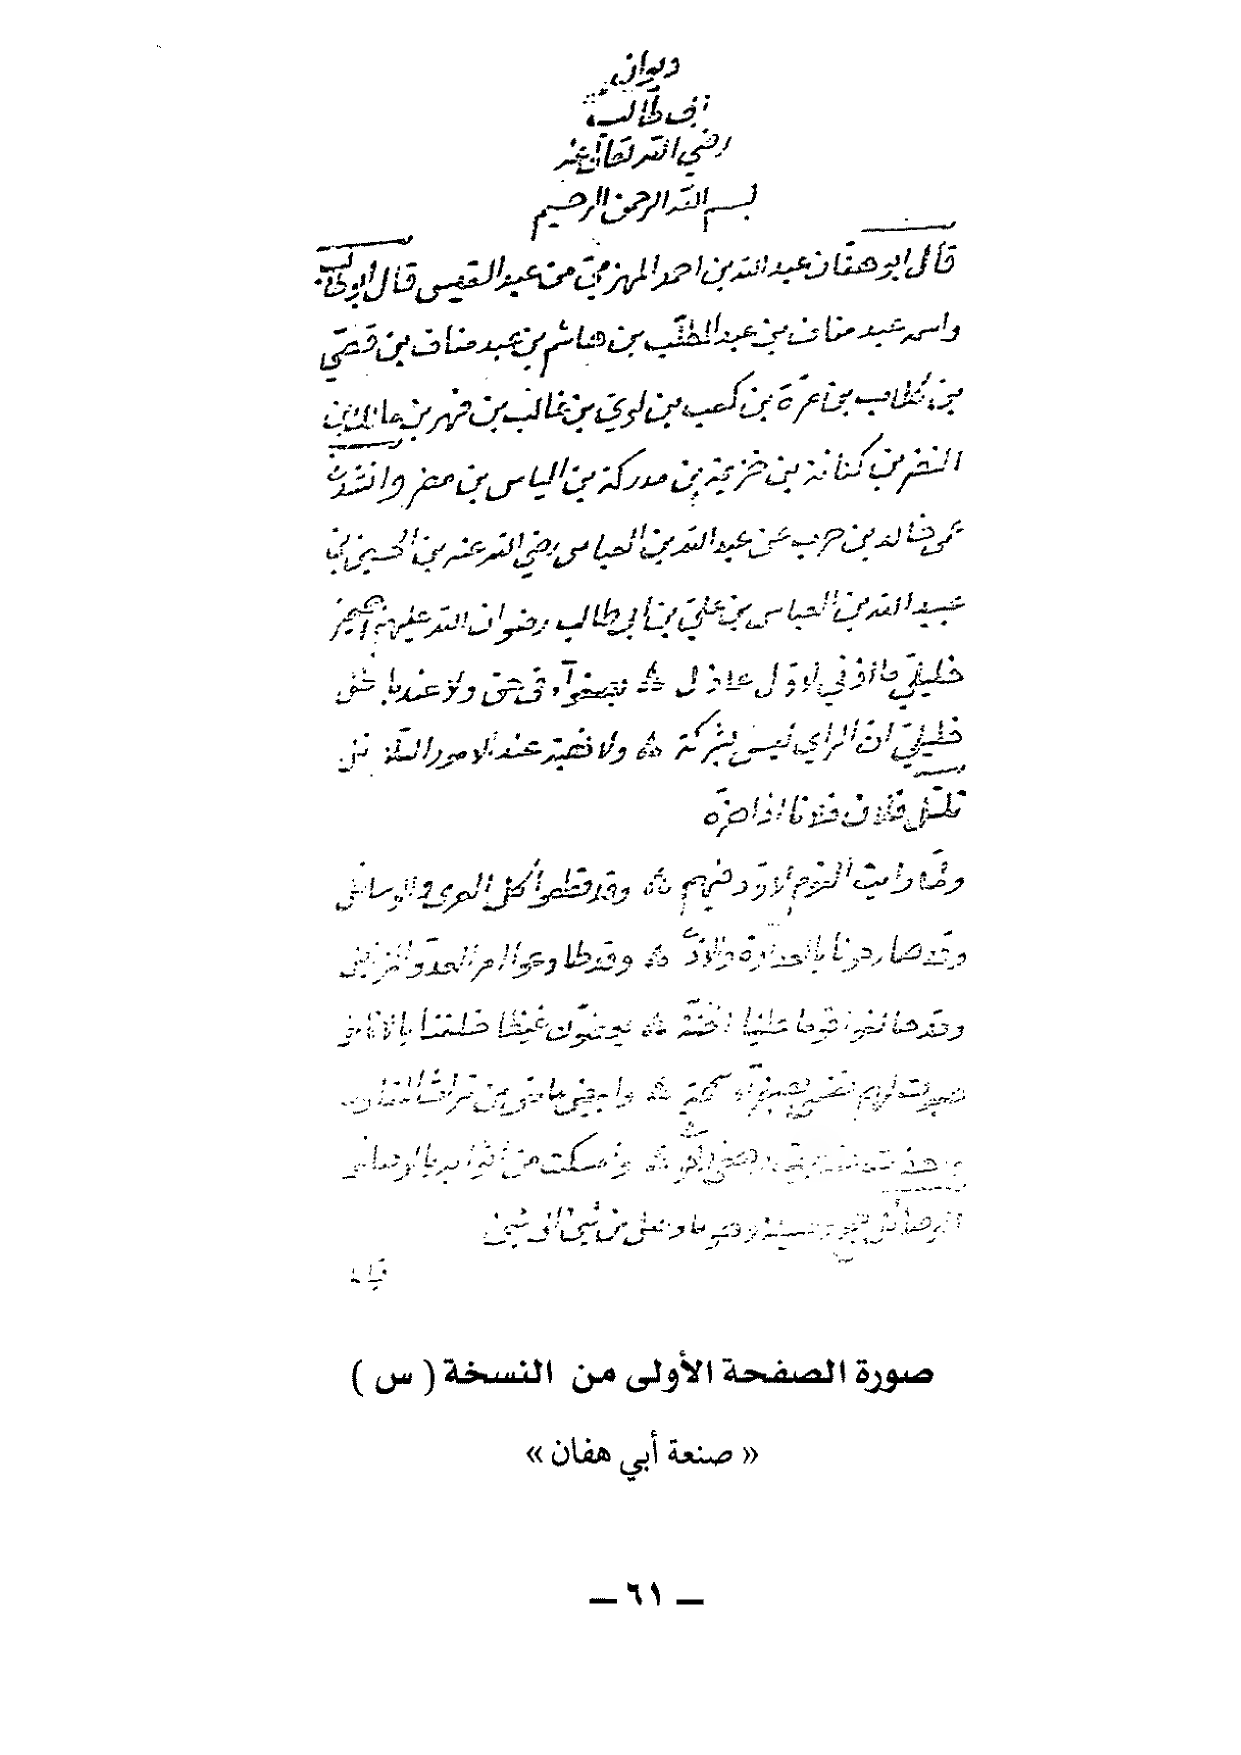 ديوان
ابى طالب
رضي الله تعالى عنه
بسم الله الرحمن الرحيم
قال ابو هفان عبد الله بن احمد المهزمي من عبد القيس قال ابو طالب
واسمه عبد مناف بن عبد المطلب بن هاشم بن عبد مناف بن قصي
بن كلاب بن مرة بن كعب بن لوي بن غالب بن فهر بن مالك بن
النضر بن كنانة بن خزيمة بن مدركة بن الياس بن مضر وانشد
خالد بن حرب عن عبد الله بن العباس رضي الله عنه بن الحسين بن
عبيد الله بن العباس بن علي بن ابى طالب رضوان الله عليهم اجمعين
خليلي ما اذني لاول عاذل بصغوآء فى حق ولا عند باطل
خليلي ان الراي ليس بشركة ولا نهنه عند الامور التلاتل
تلتل فلان فلانا اذا
ولما رايت القوم لا ود فيهم وقد قطعوا كل العرى والوسائل
وقد صارحونا بالعداوة والاذى وقد طاوعوا امر العدو المزايل
وقد حالفوا قوما علينا اظنة يعضون غيظا خلفنا بالانامل
صبرت لهم نفسي بصفرآء سمحة وابيض ماضى من تراث المقاول
وامسكت من اثوابه بالوصائل
الوصائل
صورة الصفحة الأولى من النسخة ( س )
« صنعة أبي هفان »
— ٦١ —